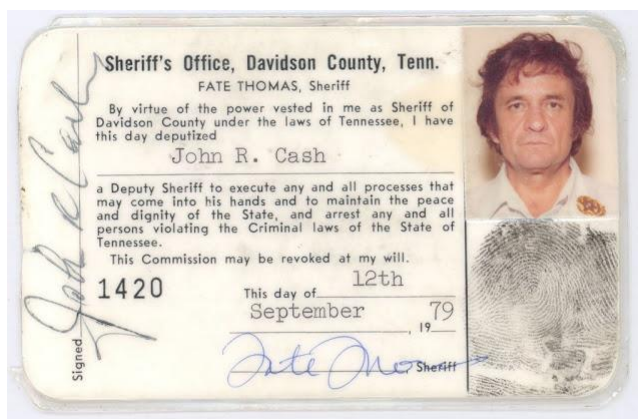 Sheriff's Office, Davidson County, Tenn.
FATE THOMAS, Sheriff
By virtue of the power vested in me as Sheriff of
Davidson County under the laws of Tennessee, I have
this day deputized
John R. Cash
a Deputy Sheriff to execute any and all processes that
may come into his hands and to maintain the peace
and dignity of the State, and arrest any and all
persons violating the Criminal laws of the State of
Tennessee.
This Commission may be revoked at my will.
1420
This day of 12th
September, 19 79
Fate Thomas, Sheriff
Signed John R Cash